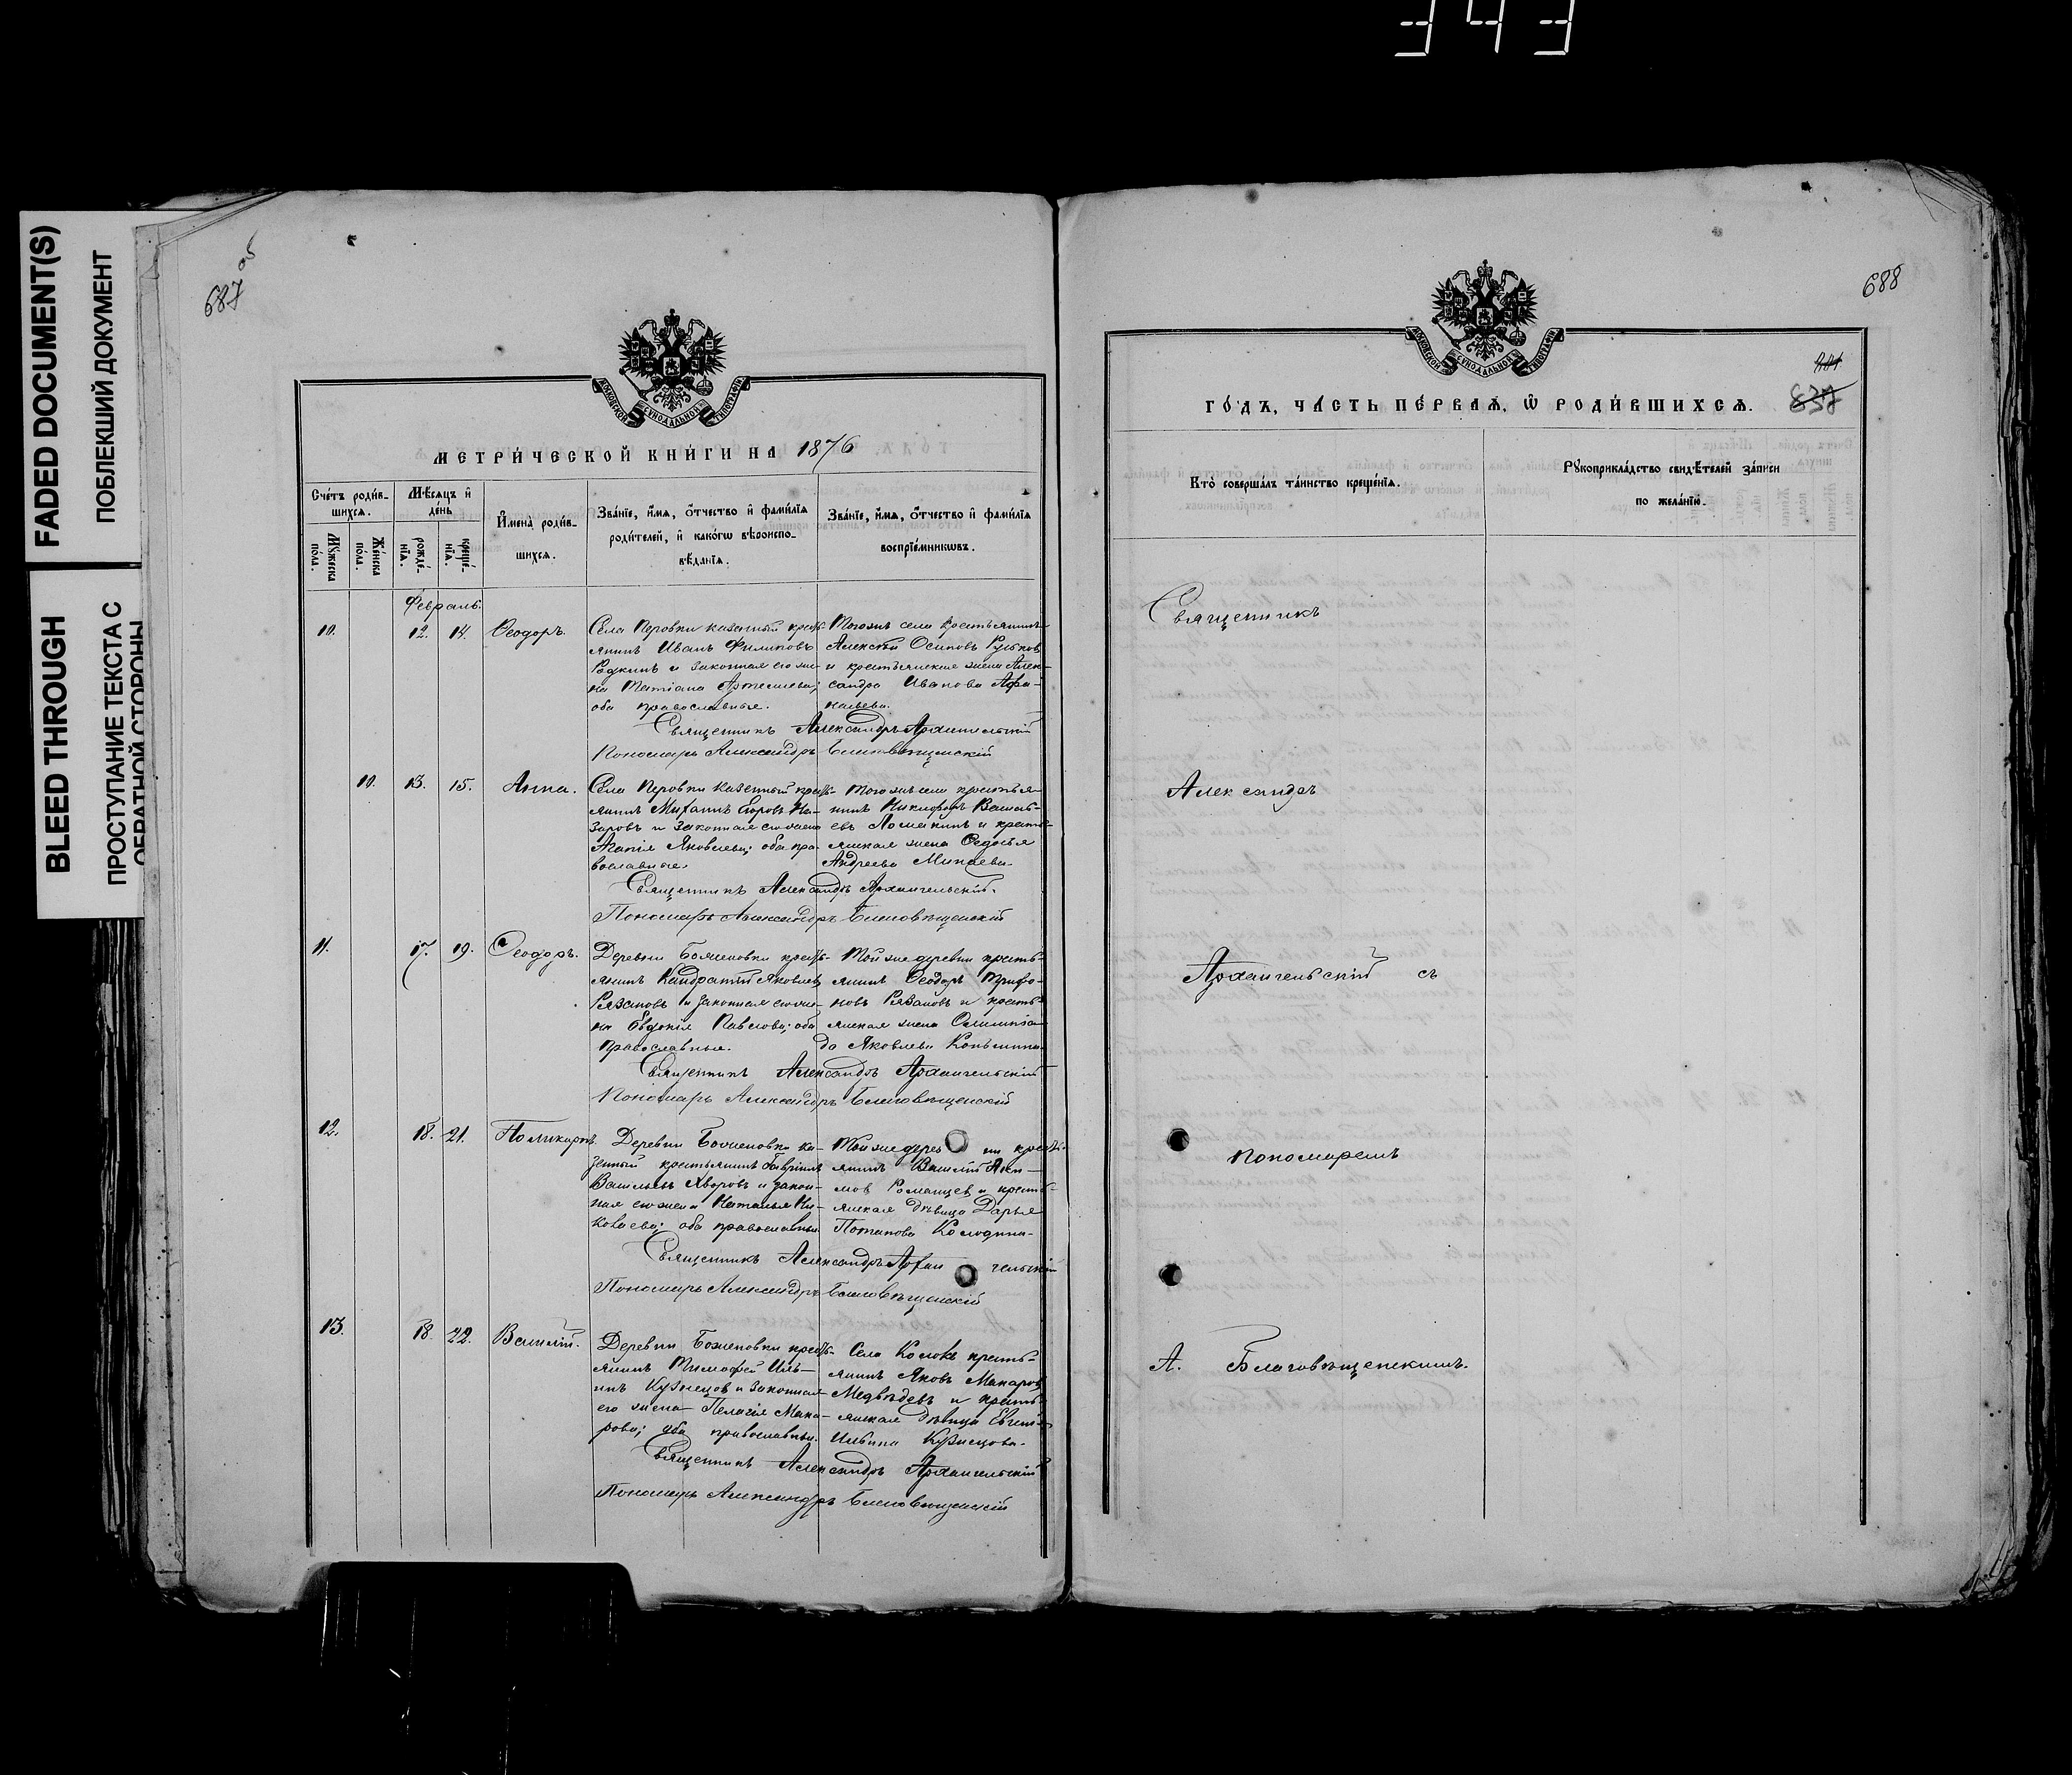 343
FADED DOCUMENT(S)
ПОБЛЕКШИЙ ДОКУМЕНТ
BLEED THROUGH
ПРОСТУПАНИЕ ТЕКСТА С
ОБРАТНОЙ СТОРОНЫ
687 об
МОСКОВСКОЙ СѴНОДАЛЬНОЙ ТИПОГРАФІИ
МЕТРИ́ЧЕСКОЙ КНИ́ГИ НА 1876
Сче́тъ роди́в-
шихсѧ.
Мѣ́сѧцъ и҆
де́нь
И҆мена̀ роди́в-
шихсѧ.
Зва́нїе, и҆́мѧ, ѻ҆́тчество и҆ фами́лїѧ
роди́телей, и҆ како́гѡ вѣроиспо-
вѣ́данїѧ.
Зва́нїе, и҆́мѧ, ѻ҆́тчество и҆ фами́лїѧ
воспрїе́мникѡвъ.
Мꙋ́жеска
пола.
Же́нска
пола.
рожде́-
нїѧ.
креще́-
нїѧ.
Февраль.
10. 12. 14. Ѳеодоръ.
Села Перовки казенный кресть-
янинъ Иванъ Филиповъ
Редкинъ и законная его же-
на Татіана Артемьева;
оба православные.
Тогоже села крестьянинъ
Алексѣй Осиповъ
и крестьянская жена Алек-
сандра Иванова Афа-
насьева.
Священникъ Александръ Архангельскій
Пономарь Александръ Благовѣщенскій
10. 13. 15. Анна.
Села Перовки казенный кресть-
янинъ Михаилъ Егоровъ На-
заровъ и законная его жена
Агапія Яковлева; оба пра-
вославные.
Тогоже села крестья-
нинъ Никифоръ Василь-
евъ Ломакинъ и кресть-
янская жена Ѳедосья
Андреева Минаева.
Священникъ Александръ Архангельскій.
Пономарь Александръ Благовѣщенскій
11. 17. 19. Ѳеодоръ.
Деревни Боженовки кресть-
янинъ Кандратій Яковлевъ
Рязановъ и законная его же-
на Евдокія Павлова; оба
православные.
Тойже деревни кресть-
янинъ Ѳеодоръ Трифо-
новъ Рязановъ и кресть-
янская жена Олимпіа-
да Яковлева
Священникъ Александръ Архангельскій
Пономарь Александръ Благовѣщенскій
12. 18. 21. Поликарпъ.
Деревни Боженовки ка-
зенный крестьянинъ Гавріилъ
Васильевъ Яворовъ и закон-
ная его жена Наталья Ни-
колаева; оба православные.
Тойже деревни кресть-
янинъ Василій Яки-
мовъ Романцев и кресть-
янская дѣвица Дарья
Потапова Колодина.
Священникъ Александръ Архангельскій
Пономарь Александръ Благовѣщенскій
13. 18 22. Василій.
Деревни Боженовки кресть-
янинъ Тимофей Иль-
инъ Кузнецов и законная
его жена Пелагія Мака-
рова; оба православные.
Села Колокъ кресть-
янинъ Яковъ Макаровъ
Медвѣдевъ и кресть-
янская дѣвица Евгенія
Ильина Кузнецова.
Священникъ Александръ Архангельскій
Пономарь Александръ Благовѣщенскій
688
МОСКОВСКОЙ СѴНОДАЛЬНОЙ ТИПОГРАФІИ
837
ГО́ДЪ, ЧА́СТЬ ПЕ́РВАѦ, Ѡ҆ РОДИ́ВШИХСѦ.
Кто̀ соверша́лъ та́инство креще́нїѧ.
Рꙋкоприкла́дство свидѣ́телей за́писи
по жела́нїю.
Священникъ
Александръ
Архангельскій съ
пономаремъ
А. Благовѣщенскимъ.